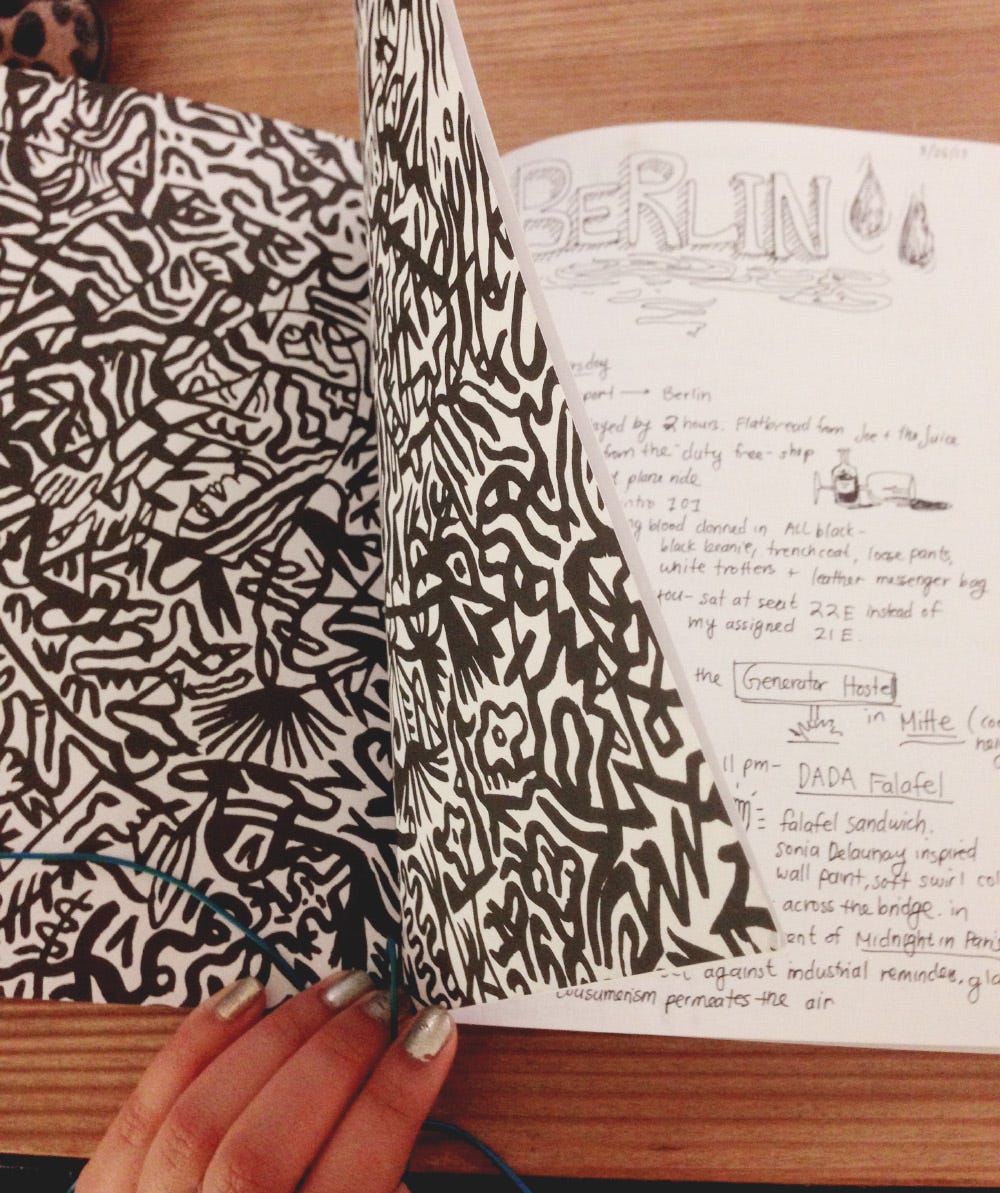 BERLIN
port → Berlin
ayed by 2 hours. Flatbread from Joe + the Juice
from the duty free-shop
plane ride
ntro 101
g blood donned in ALL black-
black beanie, trenchcoat, loose pants,
white trotters + leather messenger bag
you- sat at seat 22E instead of
my assigned 21E.
the Generator Hostel
in Mitte (co
11 pm- DADA Falafel
falafel sandwich.
Sonia Delaunay inspired
wall paint, soft swirl col
across the bridge. in
ent of Midnight in Paris
against industrial reminder. gla
consumerism permeates the air